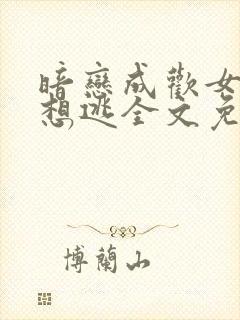 暗戀成歡女
想逃全文免
博蘭山